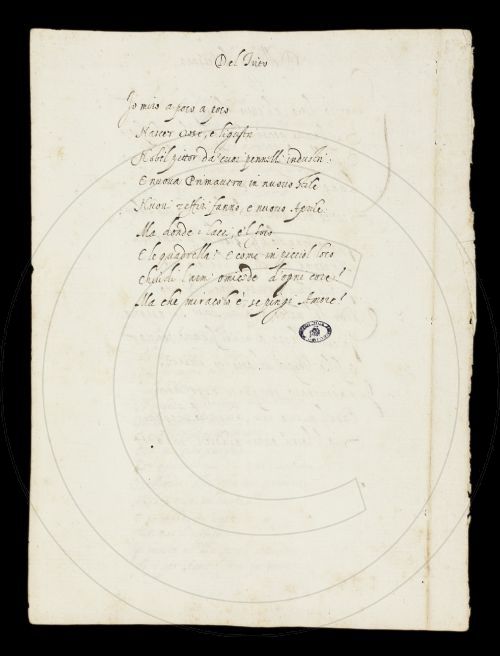 Del
Io miro a poco a poco
Nascer rose, e ligustri
Nobil pittor da tuoi pennelli industri.
E nuova Primavera in nuovo stile
Nuovi Zeffiri fanno, e nuovo Aprile.
Ma donde i lacci, e'l foco
E le quadrella? E come in picciol loco
Chiudi l'armi omicide d'ogni core?
Ma che miracolo è se pingi Amore?